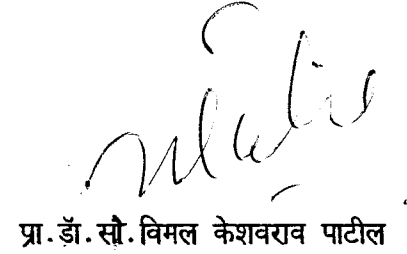 प्रा.डॉ.सौ.विमल केशवराव पाटील